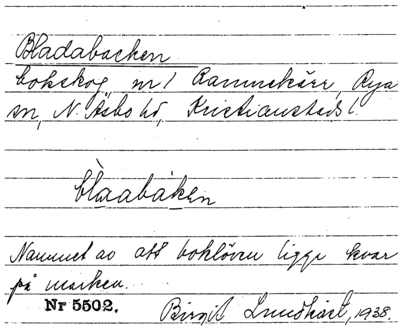 Bladabacken
bokskog m/ Rammekärr, Rya
sn, N. Åsbo hd, Kristianstads l.
blaabáken
Namnet av att boklöven ligga kvar
på marken.
Nr 5502.
Birgit 1938.